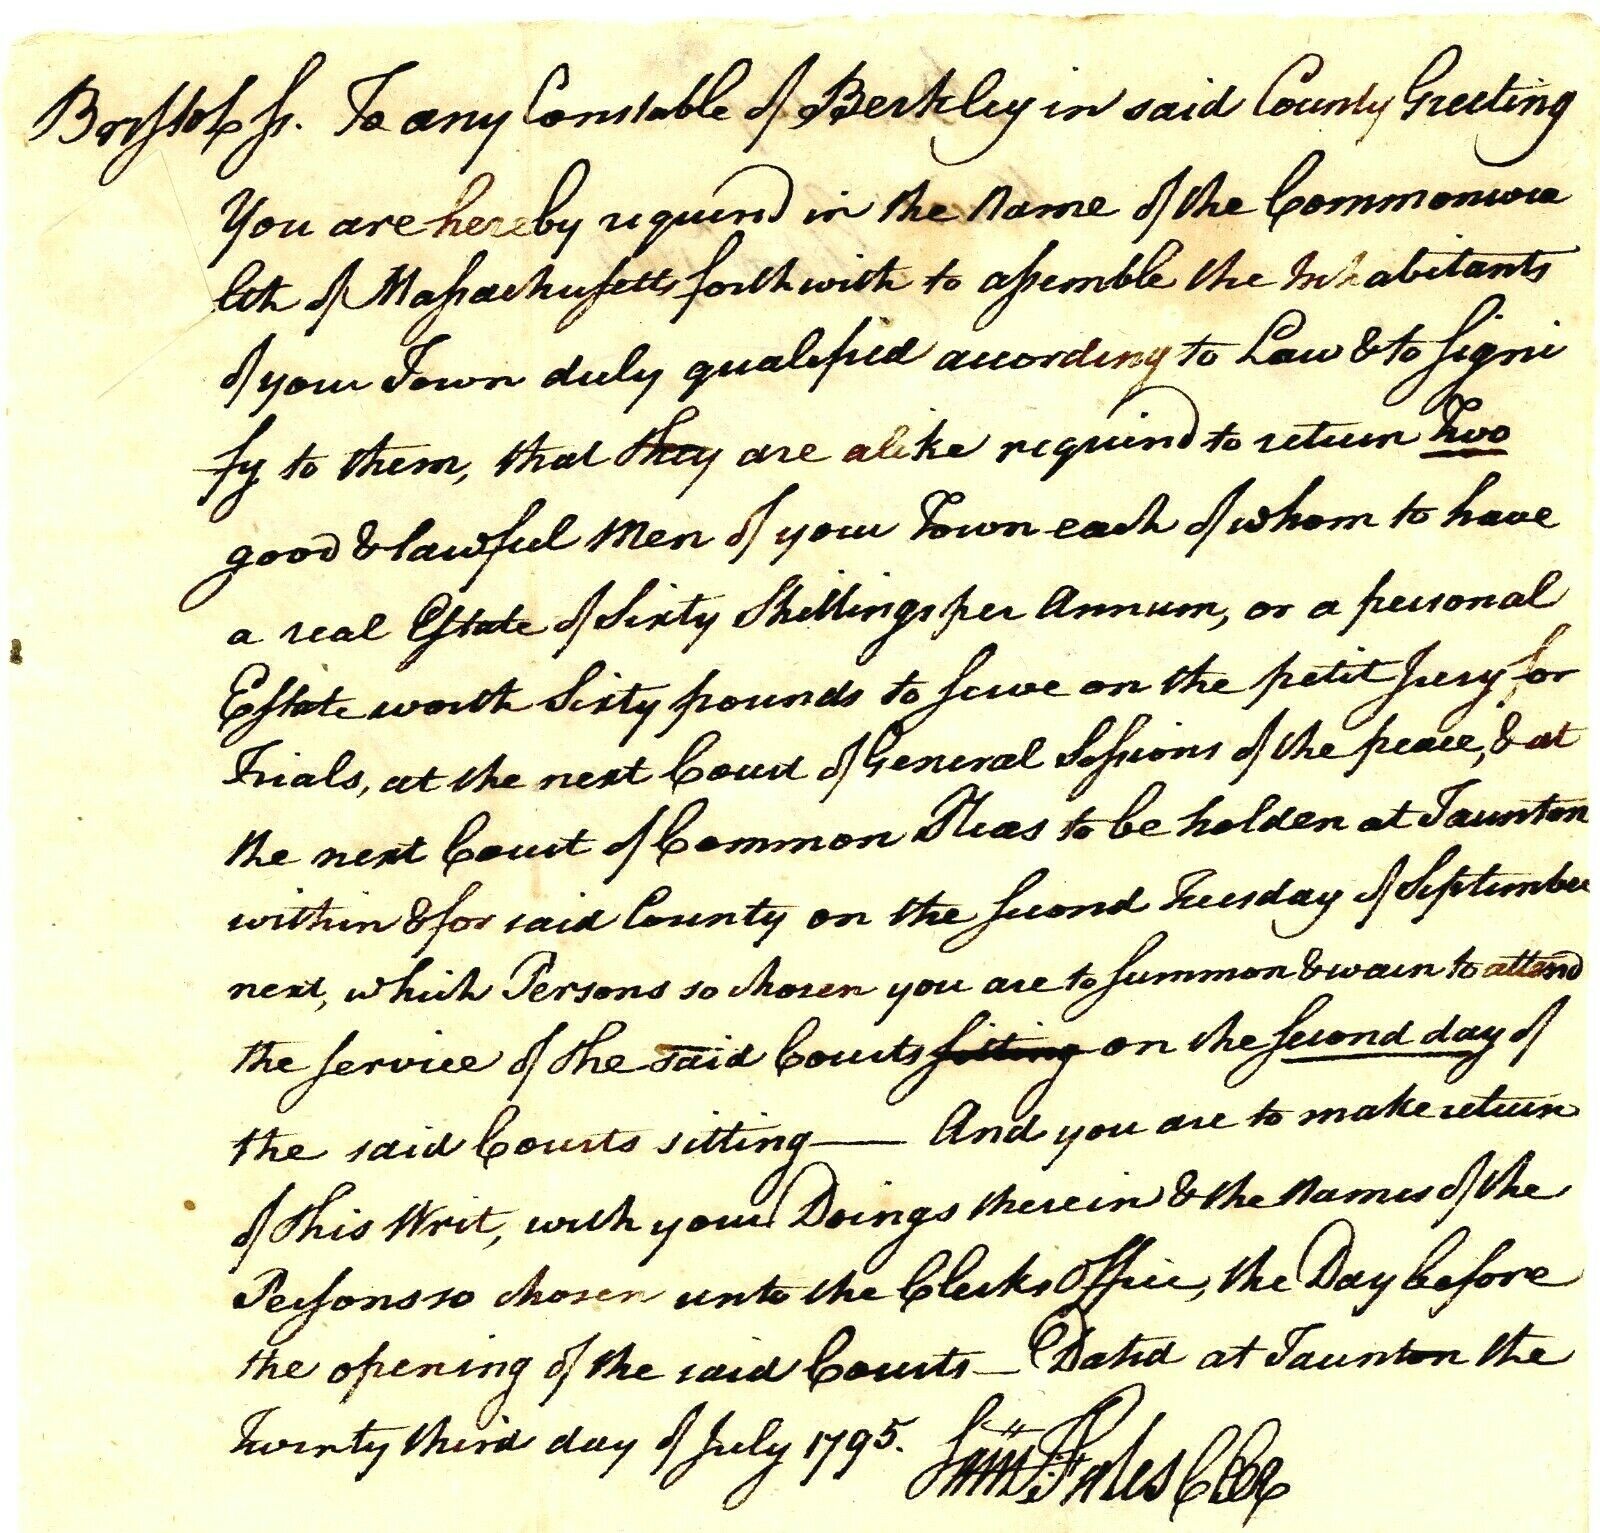 Bristol ss. To any Constable of Berkley in said County Greeting
You are hereby required in the Name of the Commonwea
lth of Massachusetts forthwith to assemble the Inhabitants
of your Town duly qualified according to Law & to signi
fy to them, that they are alike required to return Two
good & lawful Men of your Town each of whom to have
a real Estate of Sixty Shillings per Annum, or a personal
Estate worth Sixty pounds to serve on the petit Jury for
Trials, at the next Court of General Sessions of the peace, & at
the next Court of Common Pleas to be holden at Taunton
within & for said County on the second Tuesday of September
next, which Persons so chosen you are to summon & warn to attend
the service of the said Courts sitting on the second day of
the said Courts sitting — And you are to make return
of this Writ, with your Doings therein & the Names of the
Persons so chosen unto the Clerks Office, the Day before
the opening of the said Courts — Dated at Taunton the
Twenty third day of July 1795.
Saml Fales Cler